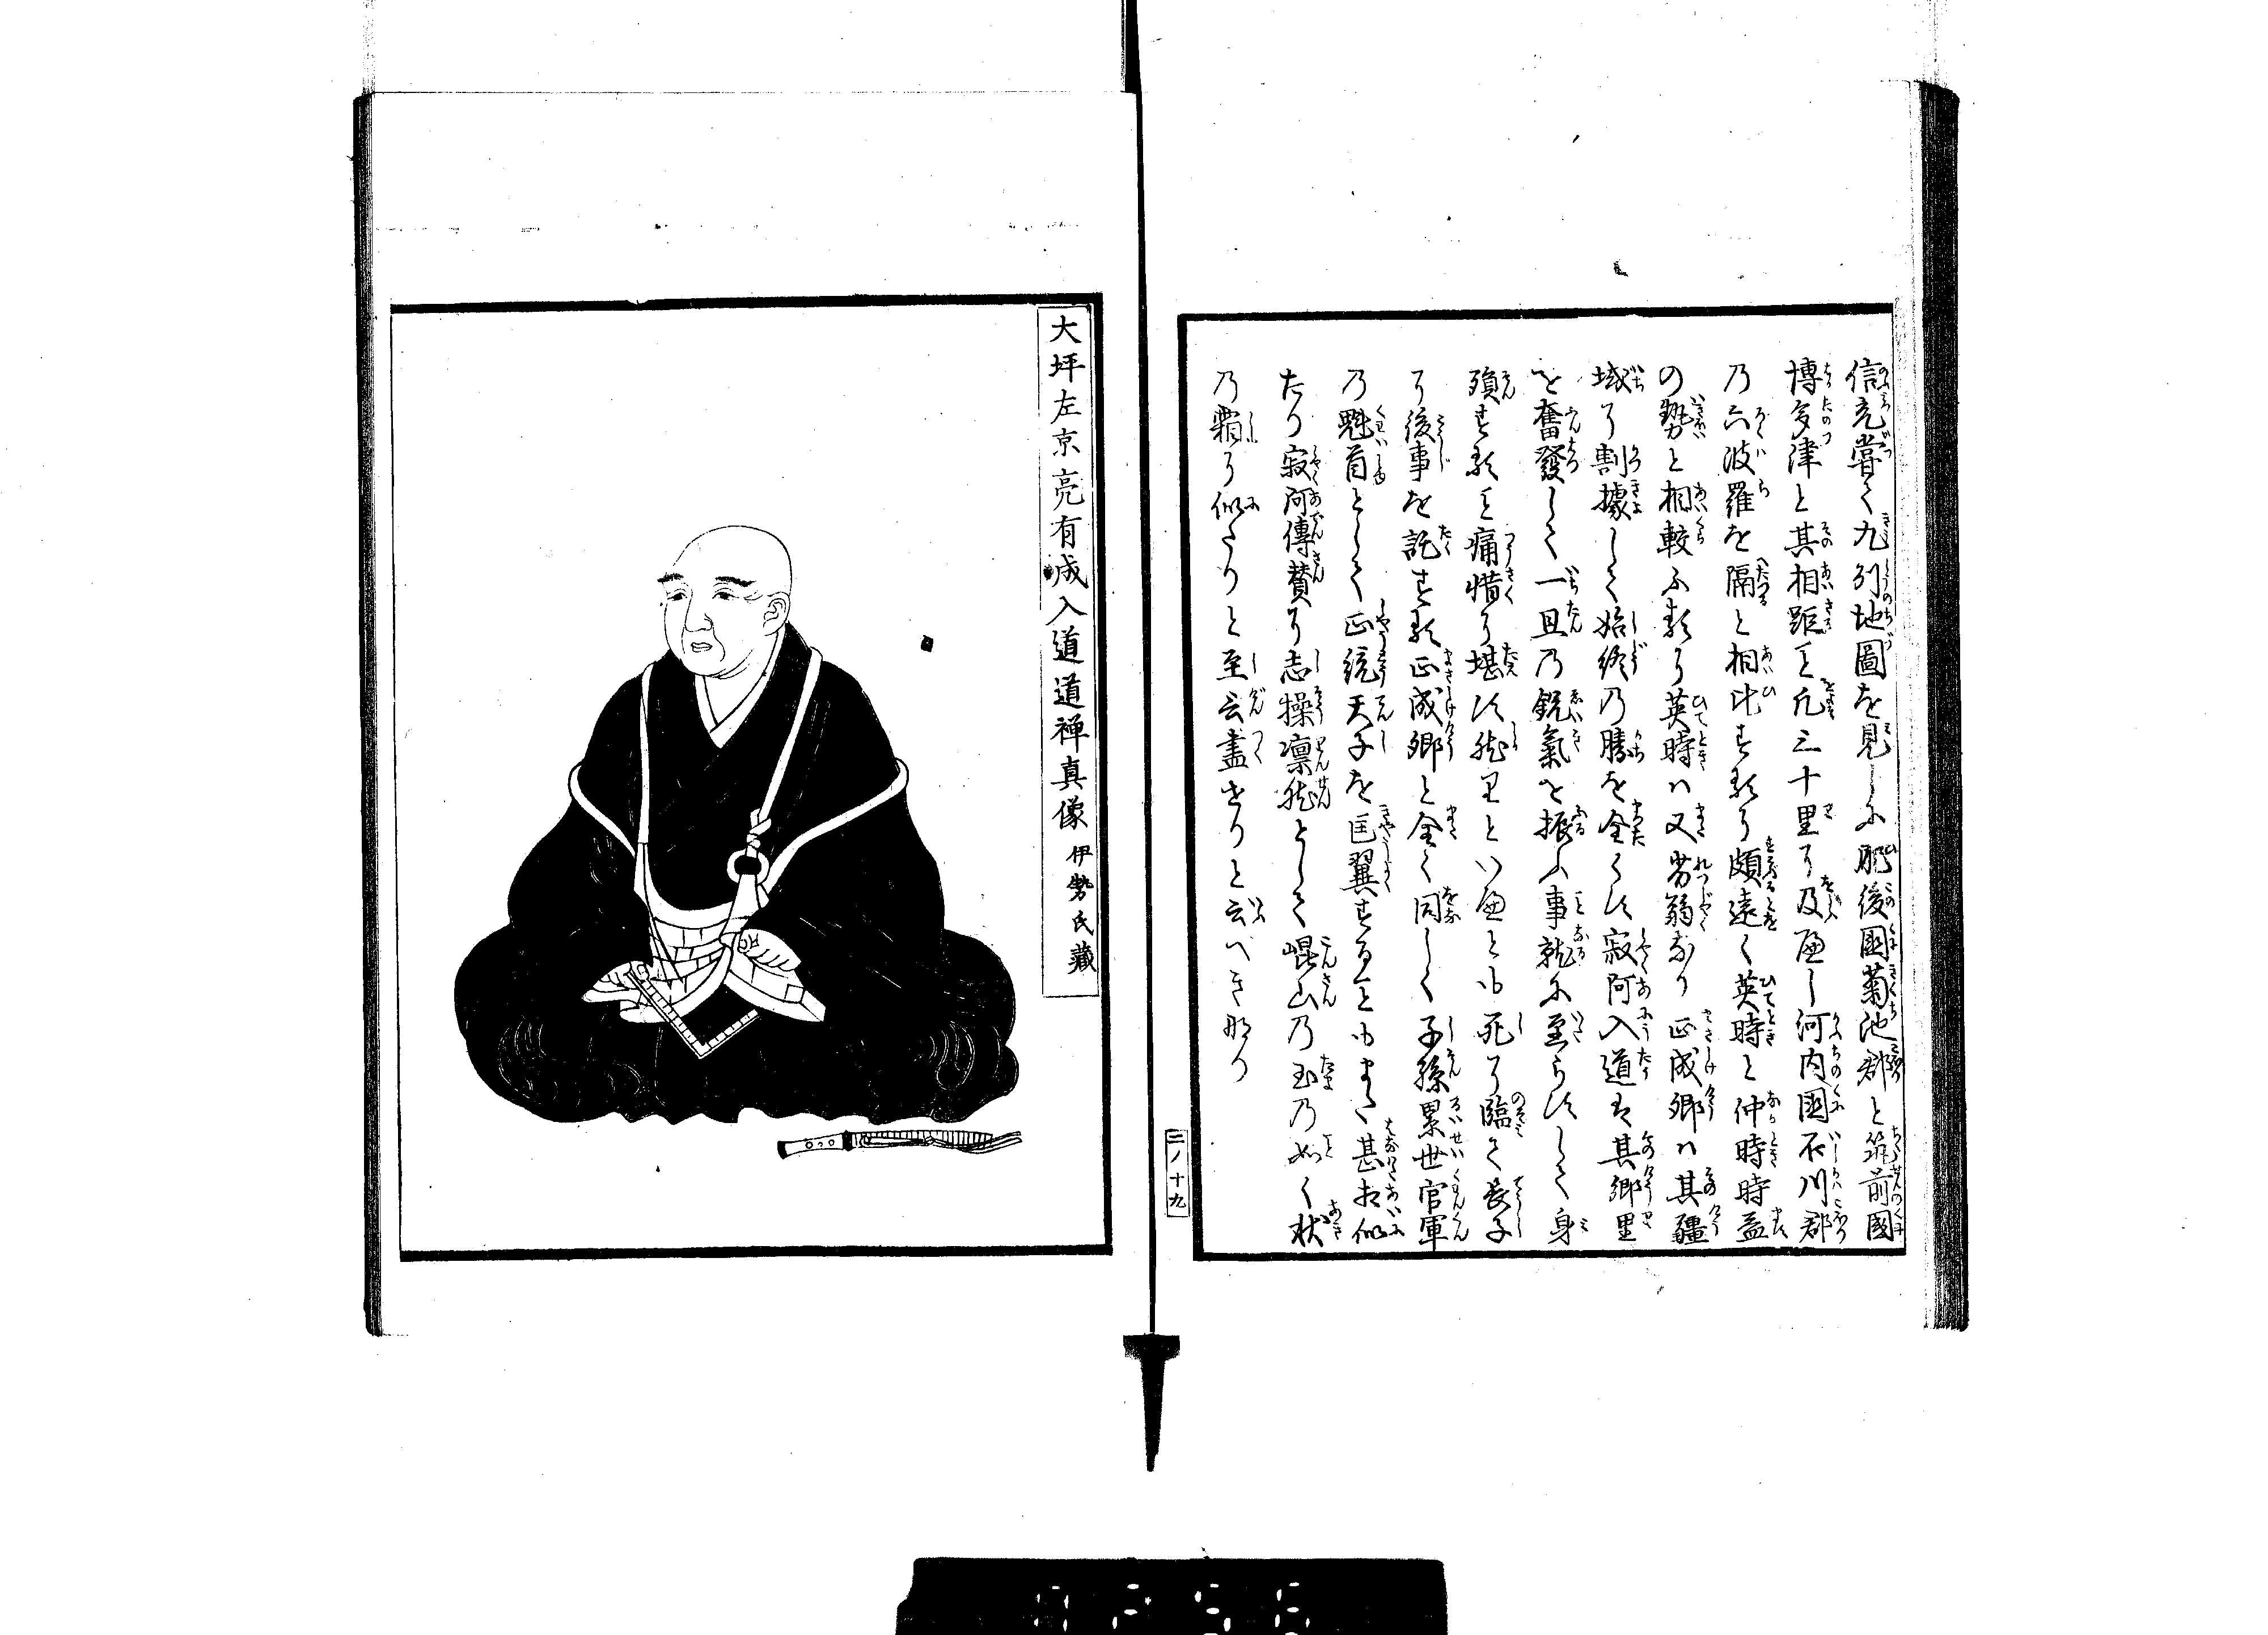 信充嘗て九州地圖を見しに肥後國菊池郡と筑前國
博多津と其相距こと凡三十里に及へし河内國石川郡
乃六波羅を隔と相比するに頗遠く英時と仲時時益
の勢と相較ふるに英時ハ又劣弱なり正成卿ハ其疆
域に割據して始終乃勝を全くす寂阿入道は其郷里
を奮發して一旦乃鋭氣を振ふ事就に至らすして身
殞すること痛惜に堪す然りといへとも死に臨て長子
に後事を託する正成卿と全く同しく子孫累世官軍
乃魁首として正統天子を匡翼することもまた甚相似
たり寂阿傳賛に志操凛然として崐山乃玉乃如く秋
乃霜に似たりと至言盡せりと云へきなり
二ノ十九
大坪左京亮有成入道道禅真像 伊勢氏藏